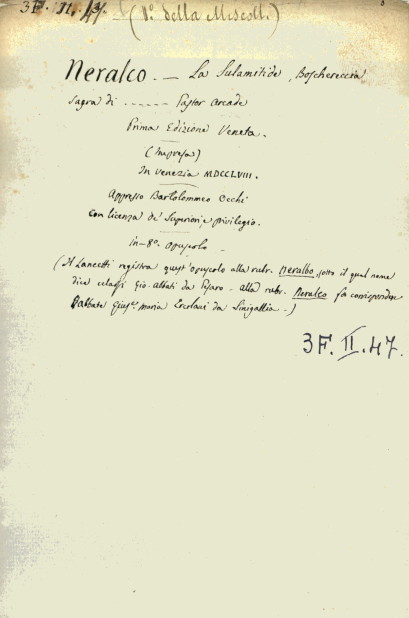 3F. II. 47. (1º. della Miscell.)
Neralco. — La Sulamitide, Boschereccia
sagra di ------ Pastor Arcade
Prima Edizione Veneta.
(Impresa)
In Venezia MDCCLVIII.
Appresso Bartolommeo Occhi
con licenza de' Superiori, e privilegio.
in-8º. opuscolo —
(Il Lancetti registra quest'opuscolo alla rubr. Neralbo, sotto il qual nome
dice celarsi Gio. Abbati da Pesaro — alla rubr. Neralco fa corrispondere
l'abbate Gius.e Maria Ercolani da Sinigallia. —)
3F. II. 47.